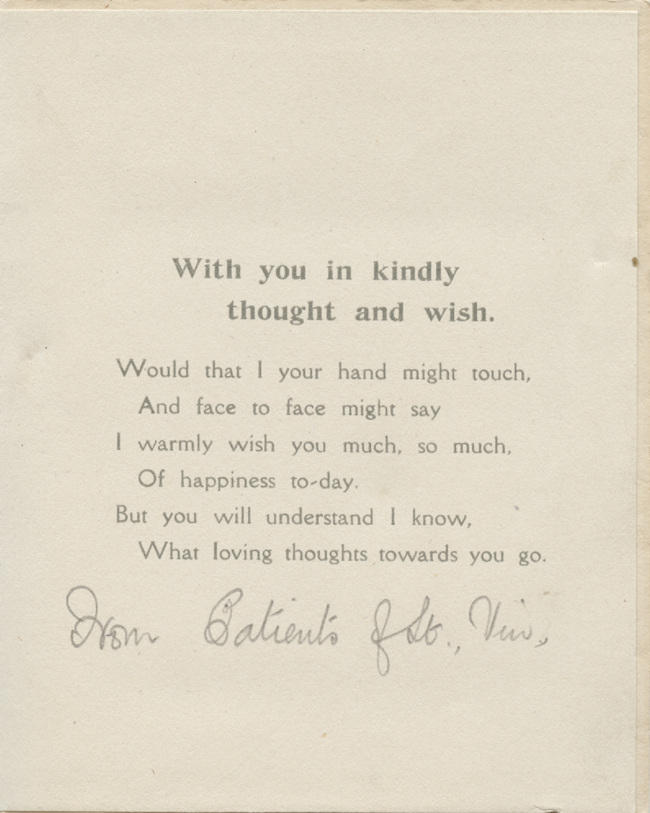 With you in kindly
thought and wish.
Would that I your hand might touch,
And face to face might say
I warmly wish you much, so much,
Of happiness to-day.
But you will understand I know,
What loving thoughts towards you go.
From Patients of St., Vin,